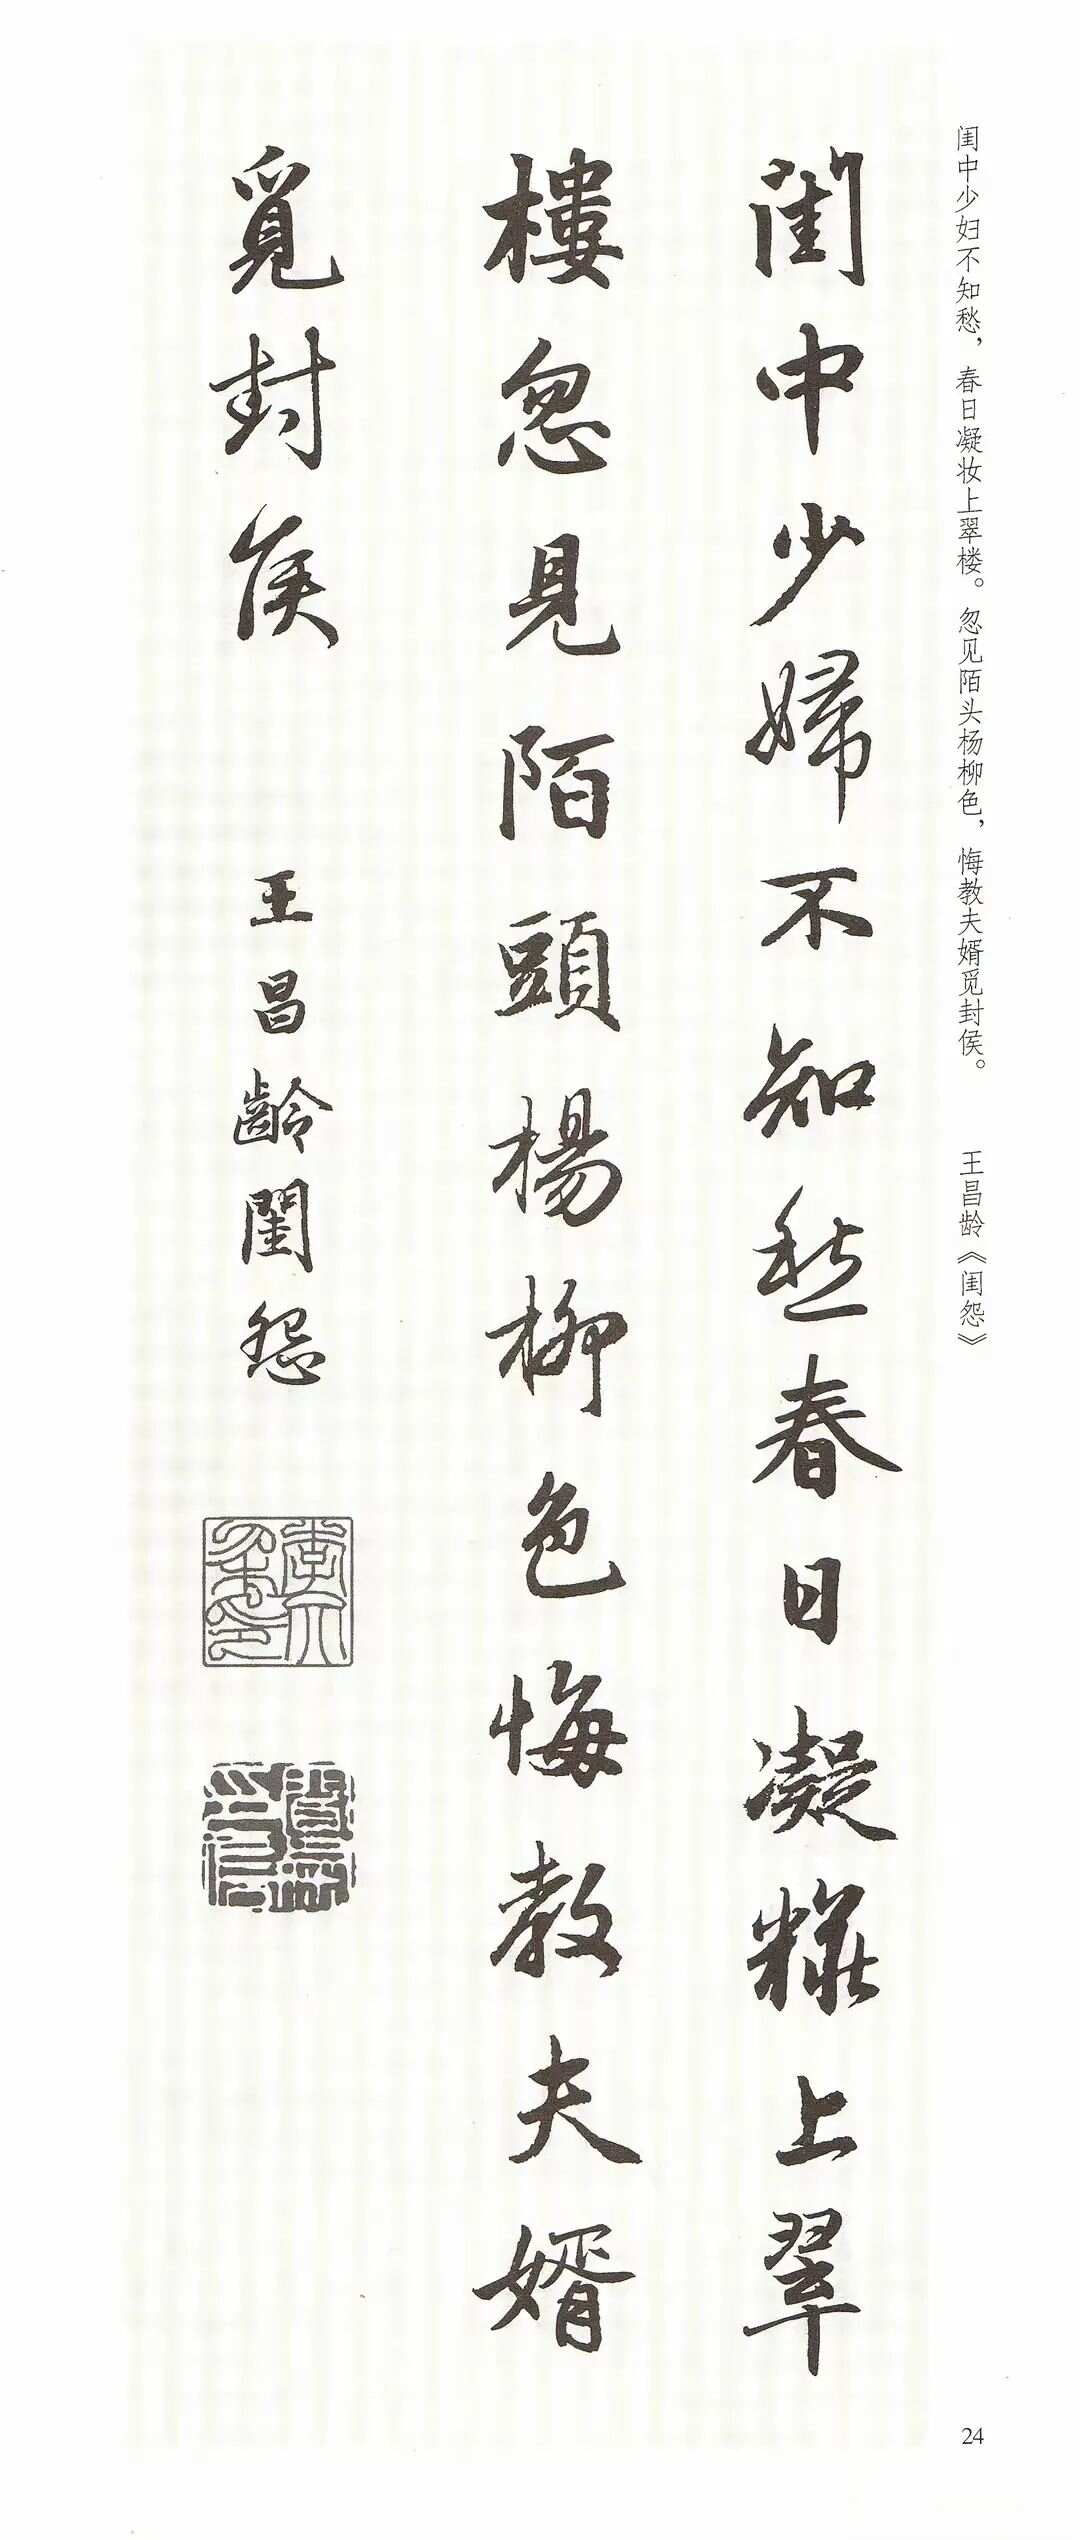 闺中少妇不知愁，春日凝妆上翠楼。忽见陌头杨柳色，悔教夫婿觅封侯。 王昌龄《闺怨》
閨中少婦不知愁春日凝糚上翠
樓忽見陌頭楊柳色悔教夫婿
覓封侯 王昌齡閨怨
24